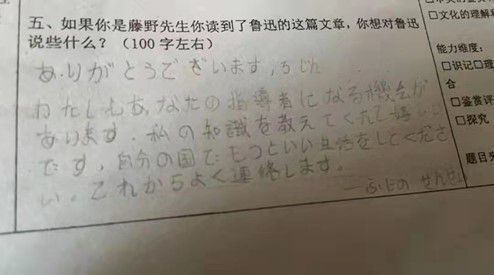 五、如果你是藤野先生你读到了鲁迅的这篇文章，你想对鲁迅
说些什么？（100字左右）
ありがとうございます,ろじん
わたしもあなたの指導者になる機会が
あります. 私の知識を教えてくれて嬉しい
です, 自分の国でもっといい生活をしてくださ
い. これからもよく連絡します.
ーふじの せんせい
□文化的理解
能力维度：
□识记□理
合
□鉴赏评
□探究
题目